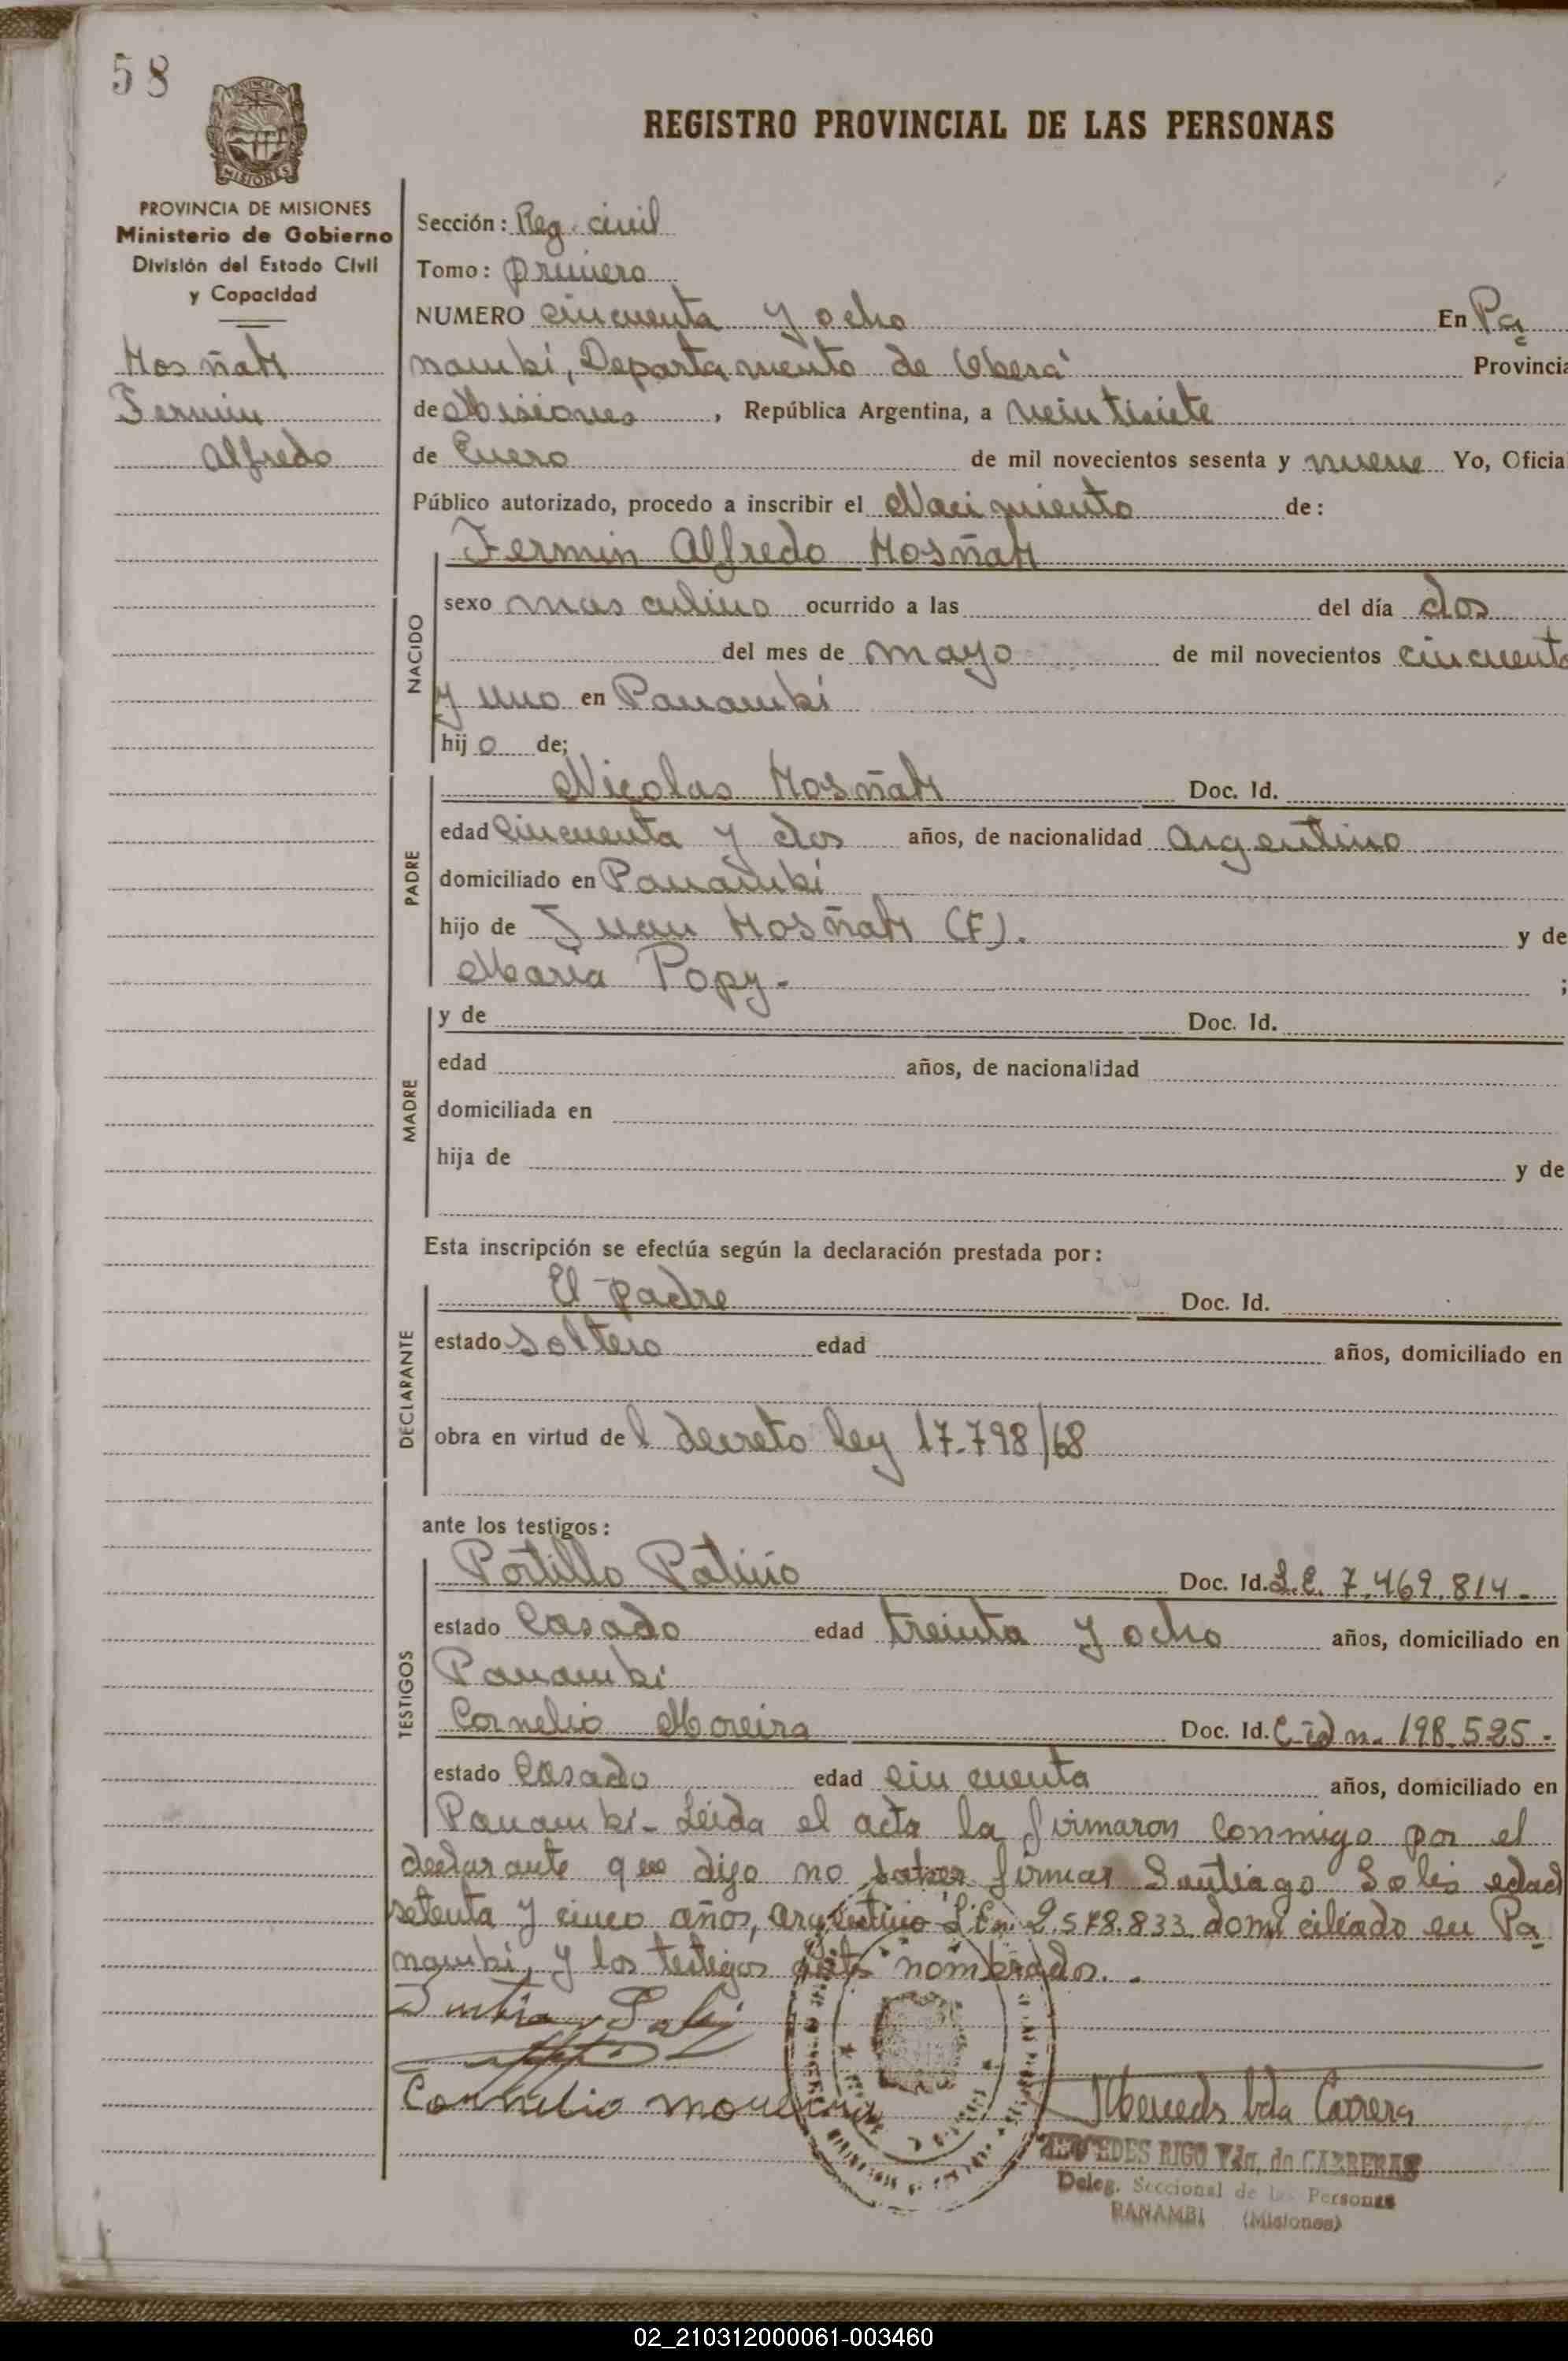 58
REGISTRO PROVINCIAL DE LAS PERSONAS
PROVINCIA DE MISIONES
Ministerio de Gobierno
División del Estado Civil
y Capacidad
Hosñah
Fermin
Alfredo
Sección: Reg. civil
Tomo: primero
NUMERO cincuenta y ocho En Pa
nambí, Departamento de Oberá Provincia
de Misiones, República Argentina, a veintisiete
de Enero de mil novecientos sesenta y nueve Yo, Oficial
Público autorizado, procedo a inscribir el Nacimiento de:
NACIDO
Fermin Alfredo Hosñah
sexo masculino ocurrido a las del día dos
del mes de mayo de mil novecientos cincuenta
y uno en Panambí
hijo de;
PADRE
Nicolas Hosñah Doc. Id.
edad cincuenta y dos años, de nacionalidad argentino
domiciliado en Panambí
hijo de Juan Hosñah (F). y de
Maria Popy. ;
MADRE
y de Doc. Id.
edad años, de nacionalidad
domiciliada en
hija de y de
Esta inscripción se efectúa según la declaración prestada por:
DECLARANTE
El padre Doc. Id.
estado soltero edad años, domiciliado en
obra en virtud del decreto ley 17.798/68
ante los testigos:
TESTIGOS
Portillo Patiño Doc. Id. L.E. 7.469.814.-
estado Casado edad treinta y ocho años, domiciliado en
Panambí
Cornelio Moreira Doc. Id. C-id n. 198.525.-
estado Casado edad cincuenta años, domiciliado en
Panambí. Leida el acta la firmaron conmigo por el
declarante que dijo no saber firmar Santiago Solis edad
setenta y cinco años, argentino L.E.n. 2.578.833 domiciliado en Pa
nambí, y los testigos nombrados. -
Cornelio Moreira
Mercedes Vda Carrera
MERCEDES RIGO Vda. de CARRERAS
Deleg. Seccional de las Personas
PANAMBI (Misiones)
02_210312000061-003460